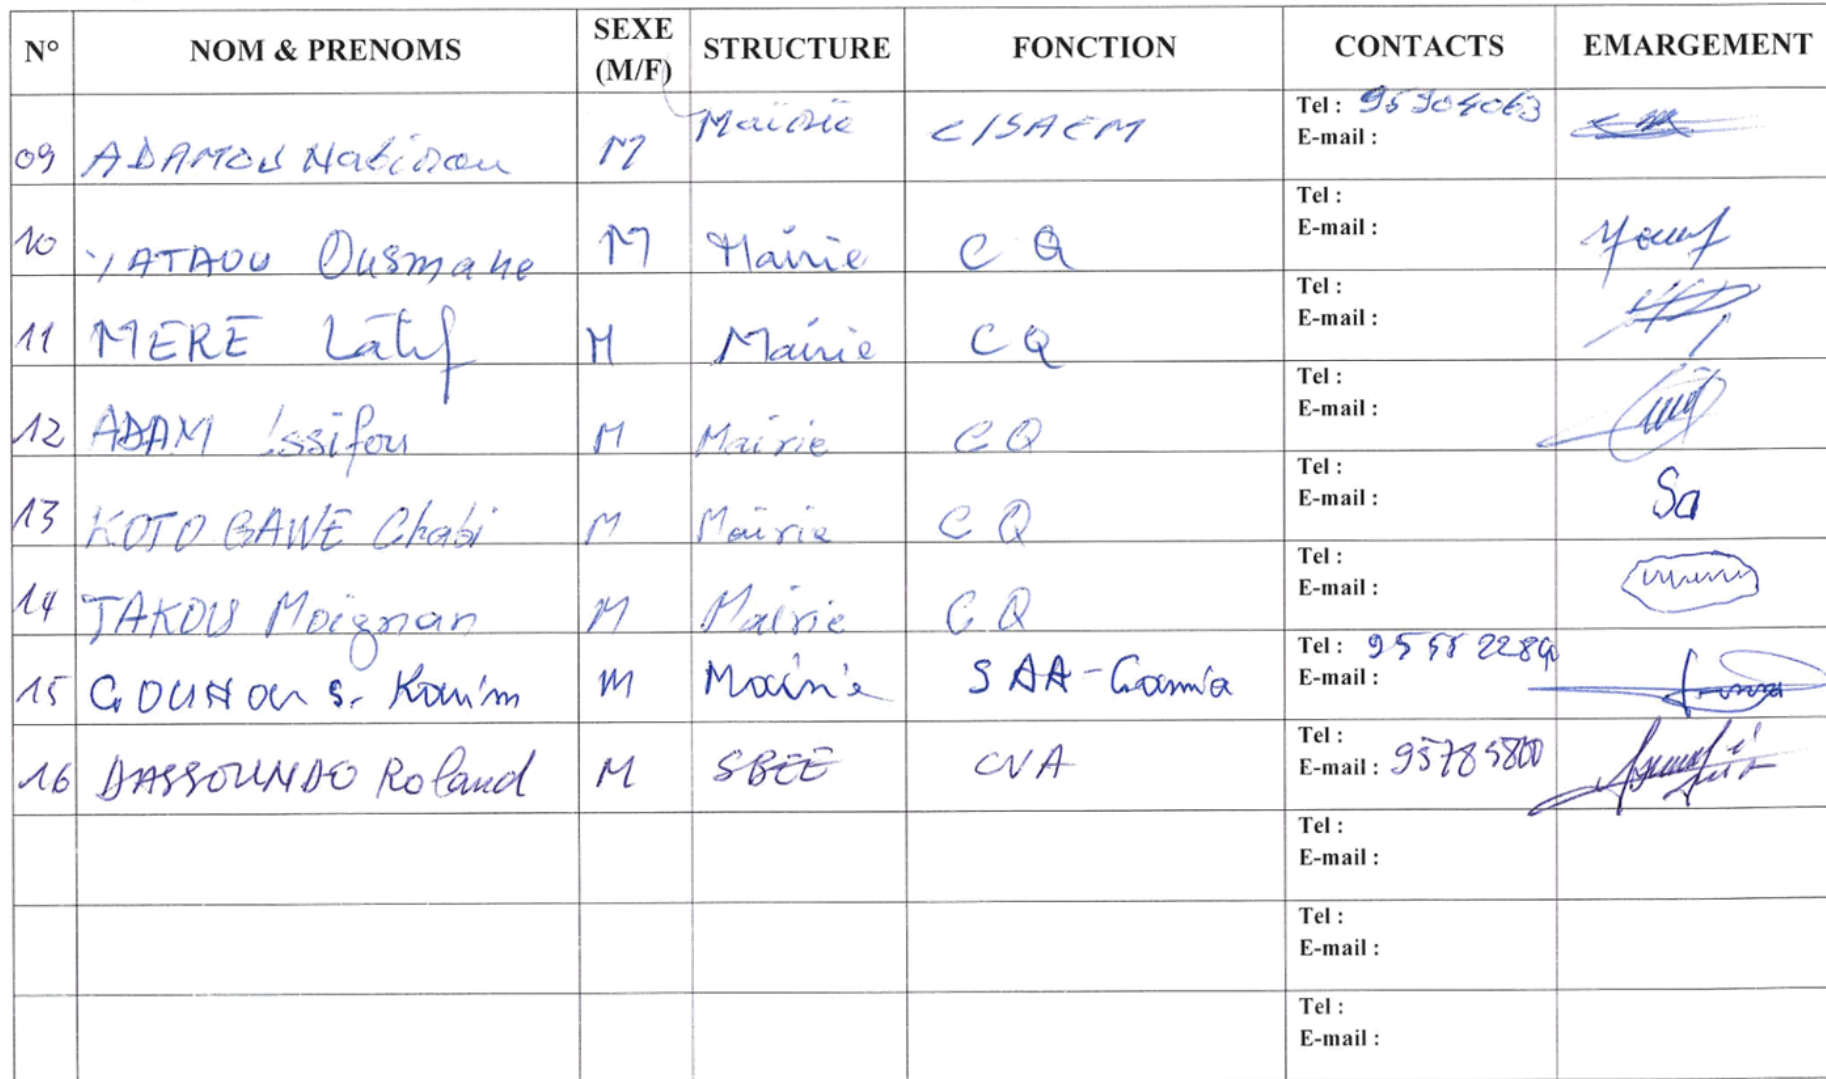 N° NOM & PRENOMS SEXE (M/F) STRUCTURE FONCTION CONTACTS EMARGEMENT
09 ADAMOU Nabirou M Mairie C/SAEM Tel : 95904063
E-mail :
10 YATAOU Ousmane M Mairie C Q Tel :
E-mail :
11 MERE Latif M Mairie C Q Tel :
E-mail :
12 ADAM Issifou M Mairie C Q Tel :
E-mail :
13 KOTO GAWE Chabi M Mairie C Q Tel :
E-mail : Sa
14 TAKOU Moignan M Mairie C Q Tel :
E-mail :
15 GOUNOU S. Karim M Mairie SAA-Gamia Tel :
E-mail :
16 DASSOUNDO Roland M SBEE CVA Tel :
E-mail : 95785800
Tel :
E-mail :
Tel :
E-mail :
Tel :
E-mail :